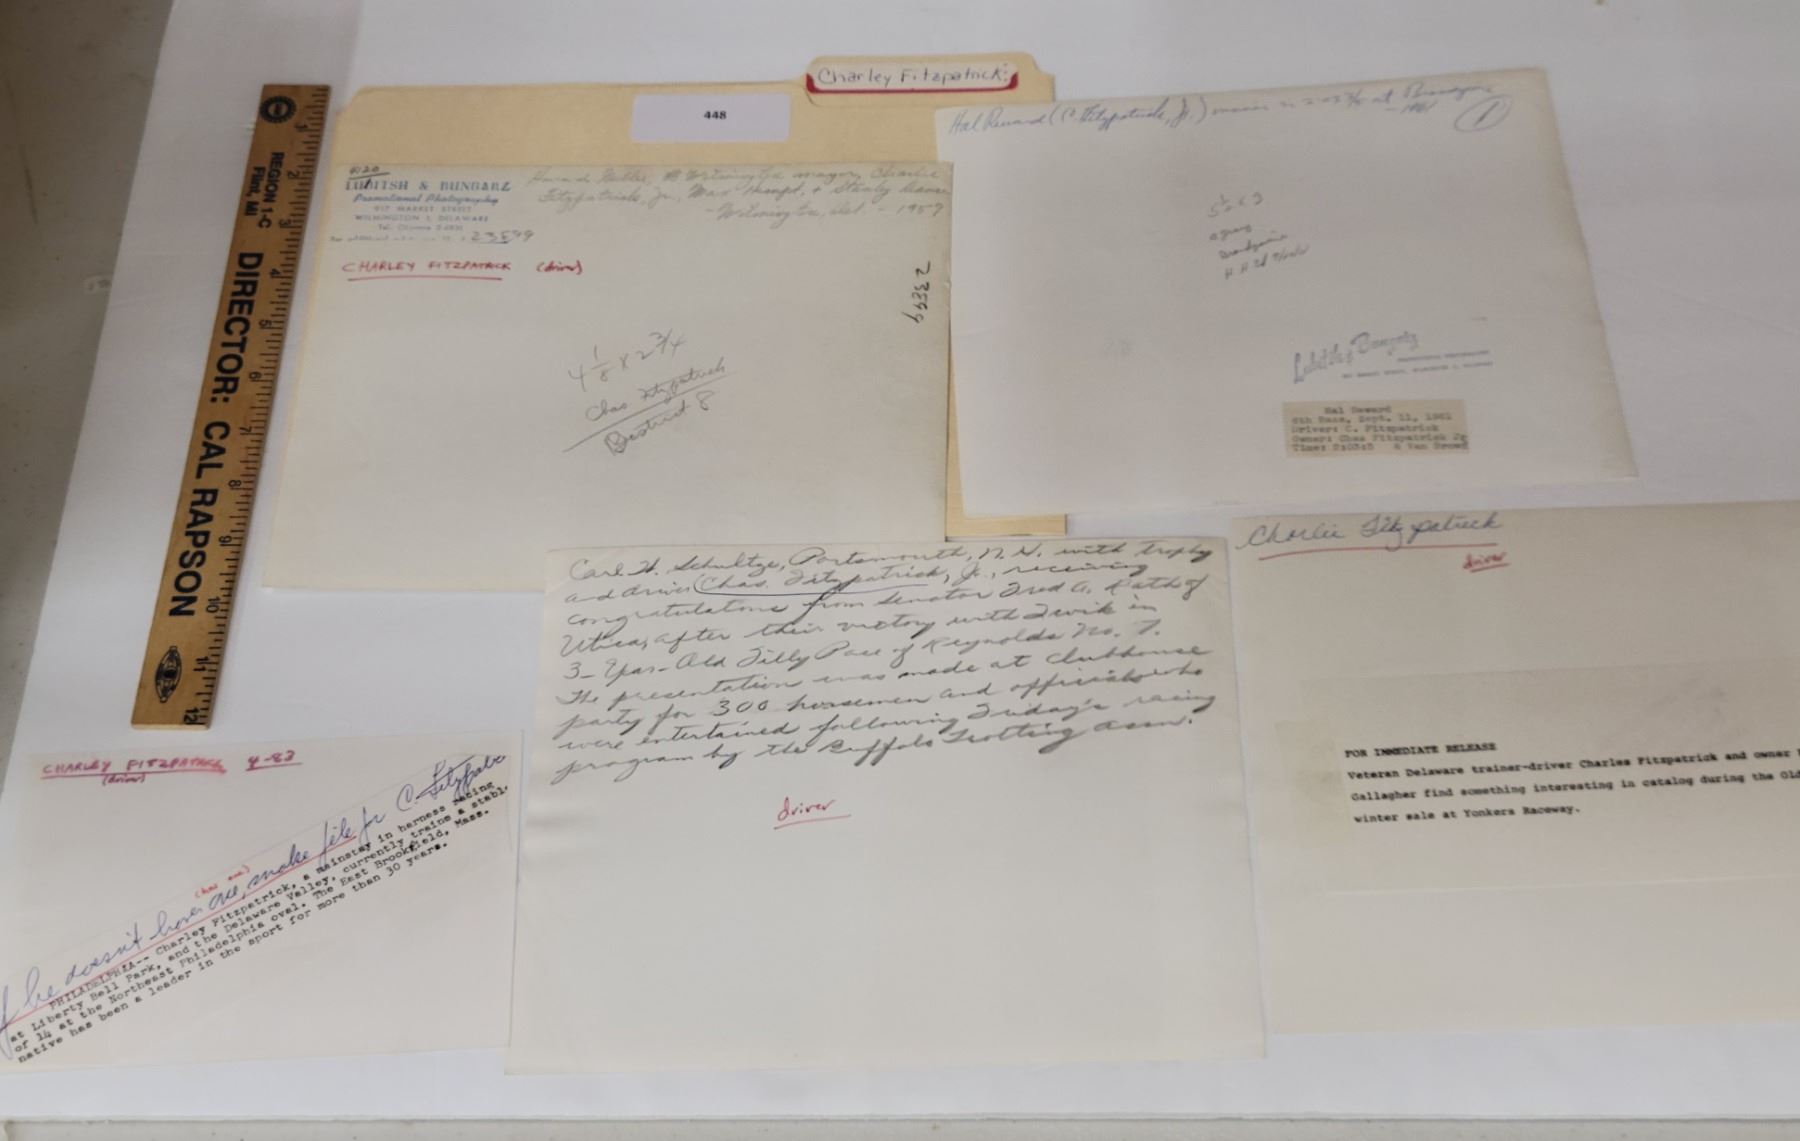 Charley Fitzpatrick:
448
REGION 1-C
Flint, MI
DIRECTOR: CAL RAPSON
1 2 3 4 5 6 7 8 9 10 11 12
4120
LUBITSH & BUNGARZ
Promotional Photography
917 MARKET STREET
WILMINGTON 1, DELAWARE
23899
Wilmington mayor, Charlie
Fitzpatrick, Jr., Max Hempt, + Stanley
- Wilmington, Del. - 1957
CHARLEY FITZPATRICK (driver)
23899
4 1/8 x 2 3/4
Chas Fitzpatrick
District 8
Hal Reward (C. Fitzpatrick, Jr.) winner in 2:03 3/5 at Brandywine
- 1961
1
5 1/2 x 3
Brandywine
Lubitsh & Bungarz
Hal Reward
6th Race, Sept. 11, 1961
Driver: C. Fitzpatrick
Owner: Chas Fitzpatrick Jr
Time: 2:03:3 & Van Brown
Carl H. Schultze, Portsmouth, N. H. with trophy
and driver Chas. Fitzpatrick, Jr., receiving
congratulations from Senator Fred A. Rath of
Utica, after their victory with Twik in
3-Year-Old Filly Pace of Reynolds No. 7.
The presentation was made at clubhouse
party for 300 horsemen and officials who
were entertained following Friday's racing
program by the Buffalo Trotting Assn.
driver
Charlie Fitzpatrick
driver
FOR IMMEDIATE RELEASE
Veteran Delaware trainer-driver Charles Fitzpatrick and owner
Gallagher find something interesting in catalog during the Old
winter sale at Yonkers Raceway.
CHARLEY FITZPATRICK 4-83
(driver)
(has one)
If he doesn't have one, make file for C. Fitzpatric
PHILADELPHIA-- Charley Fitzpatrick, a mainstay in harness racing
at Liberty Bell Park, and the Delaware Valley, currently trains a stabl
of 14 at the Northeast Philadelphia oval. The East Brookfield, Mass.
native has been a leader in the sport for more than 30 years.